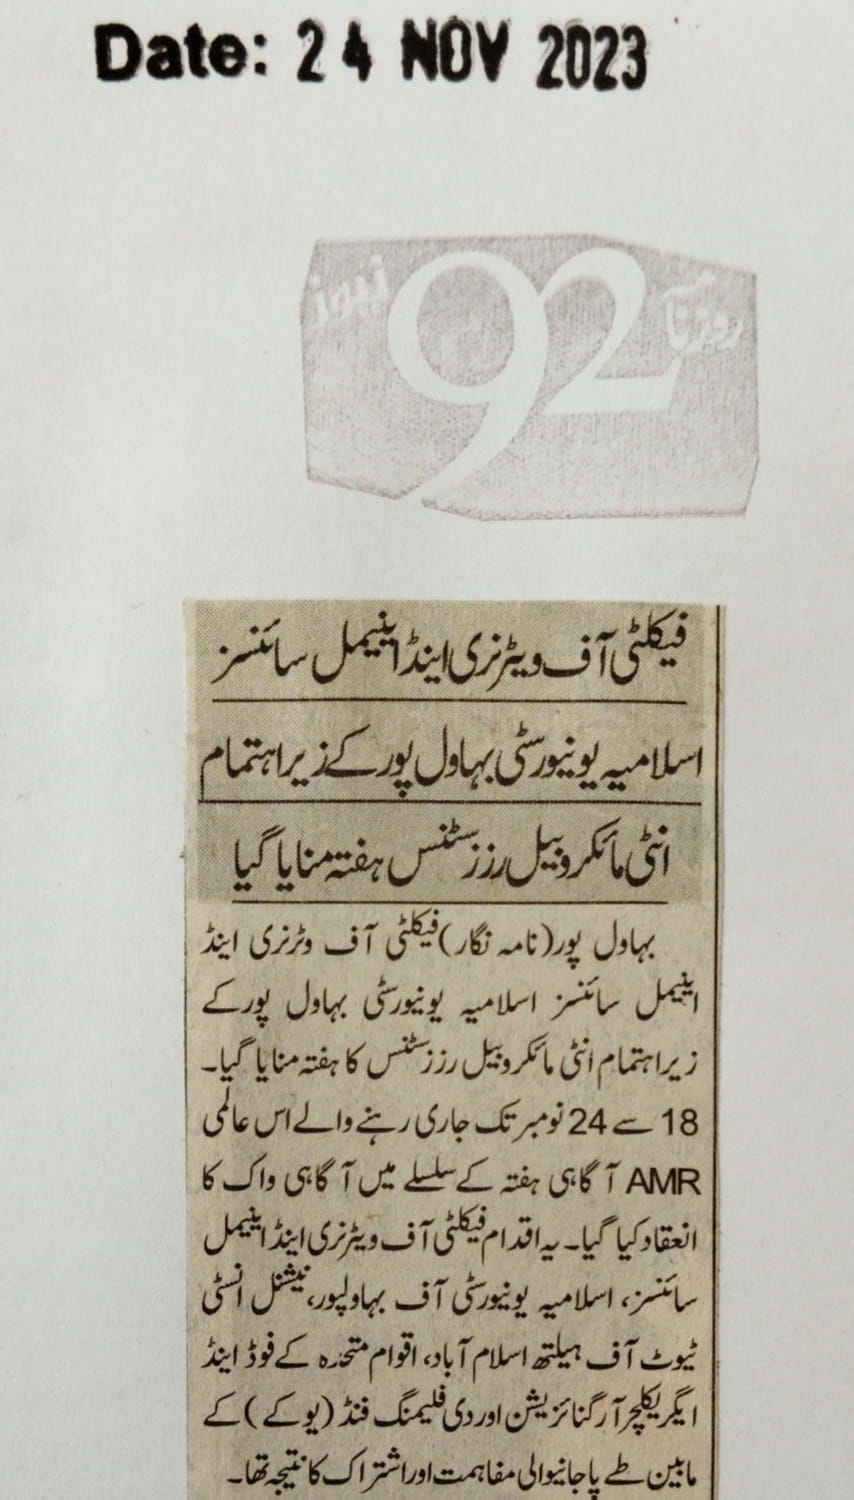 Date: 24 NOV 2023
روزنامہ 92 نیوز
فیکلٹی آف ویٹرنری اینڈ اینیمل سائنسز
اسلامیہ یونیورسٹی بہاول پور کے زیر اہتمام
انٹی مائکروبیل رزسٹنس ہفتہ منایا گیا
بہاول پور(نامہ نگار)فیکلٹی آف وٹرنری اینڈ
اینیمل سائنسز اسلامیہ یونیورسٹی بہاول پور کے
زیر اہتمام انٹی مائکروبیل رزسٹنس کا ہفتہ منایا گیا۔
18 سے 24 نومبر تک جاری رہنے والے اس عالمی
AMR آگاہی ہفتہ کے سلسلے میں آگاہی واک کا
انعقاد کیا گیا۔ یہ اقدام فیکلٹی آف ویٹرنری اینڈ اینیمل
سائنسز، اسلامیہ یونیورسٹی آف بہاولپور، نیشنل انسٹی
ٹیوٹ آف ہیلتھ اسلام آباد، اقوام متحدہ کے فوڈ اینڈ
ایگریکلچر آرگنائزیشن اور دی فلیمنگ فنڈ (یو کے) کے
مابین طے پا جانیوالی مفاہمت اور اشتراک کا نتیجہ تھا۔